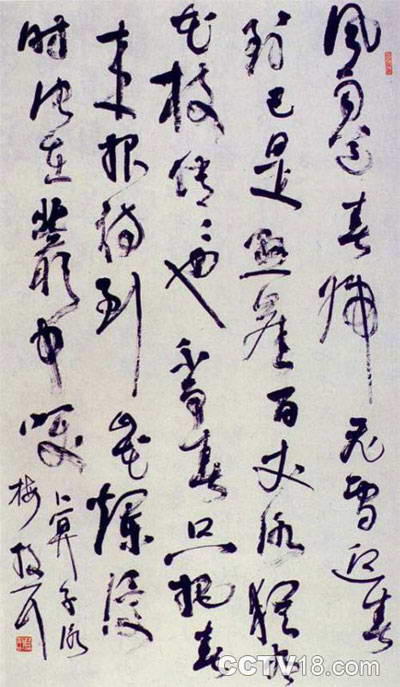 风雨送春归 飞雪迎春
到已是悬崖百丈冰犹有
花枝俏〻也不争春只把春
来报待到山花烂漫
时她在丛中笑
卜算子咏
梅
CCTV18.com